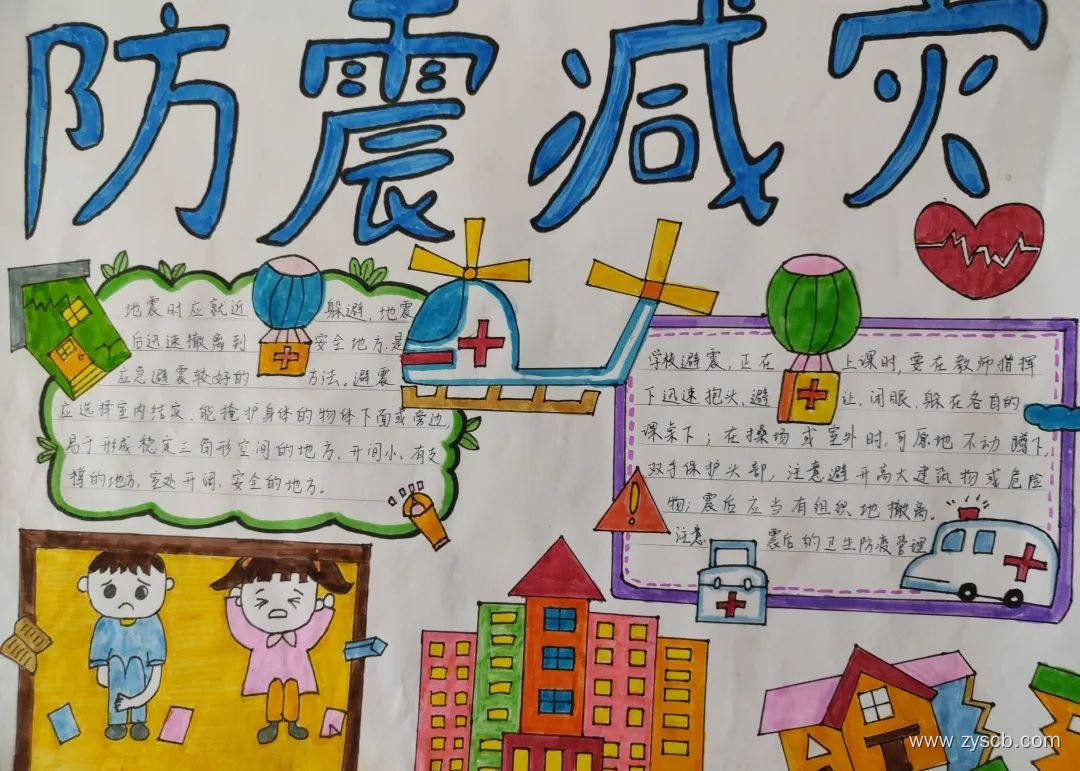 防震减灾
地震时应就近 躲避,地震
后迅速撤离到 安全地方,是
应急避震较好的 方法。避震
应选择室内结实、能掩护身体的物体下面或旁边,
易于形成稳定三角形空间的地方,开间小、有支
撑的地方,室外开阔、安全的地方。
学校避震,正在 上课时,要在教师指挥
下迅速抱头、避 让、闭眼、躲在各自的
课桌下;在操场或室外时,可原地不动蹲下,
双手保护头部,注意避开高大建筑物或危险
物;震后应当有组织地撤离。
注意 震后的卫生防疫管理
www.zyscb.com